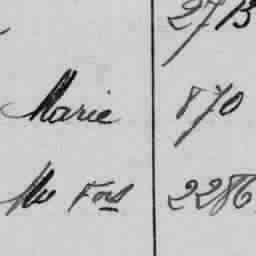 27B
Marie 870
Me Fois 2286